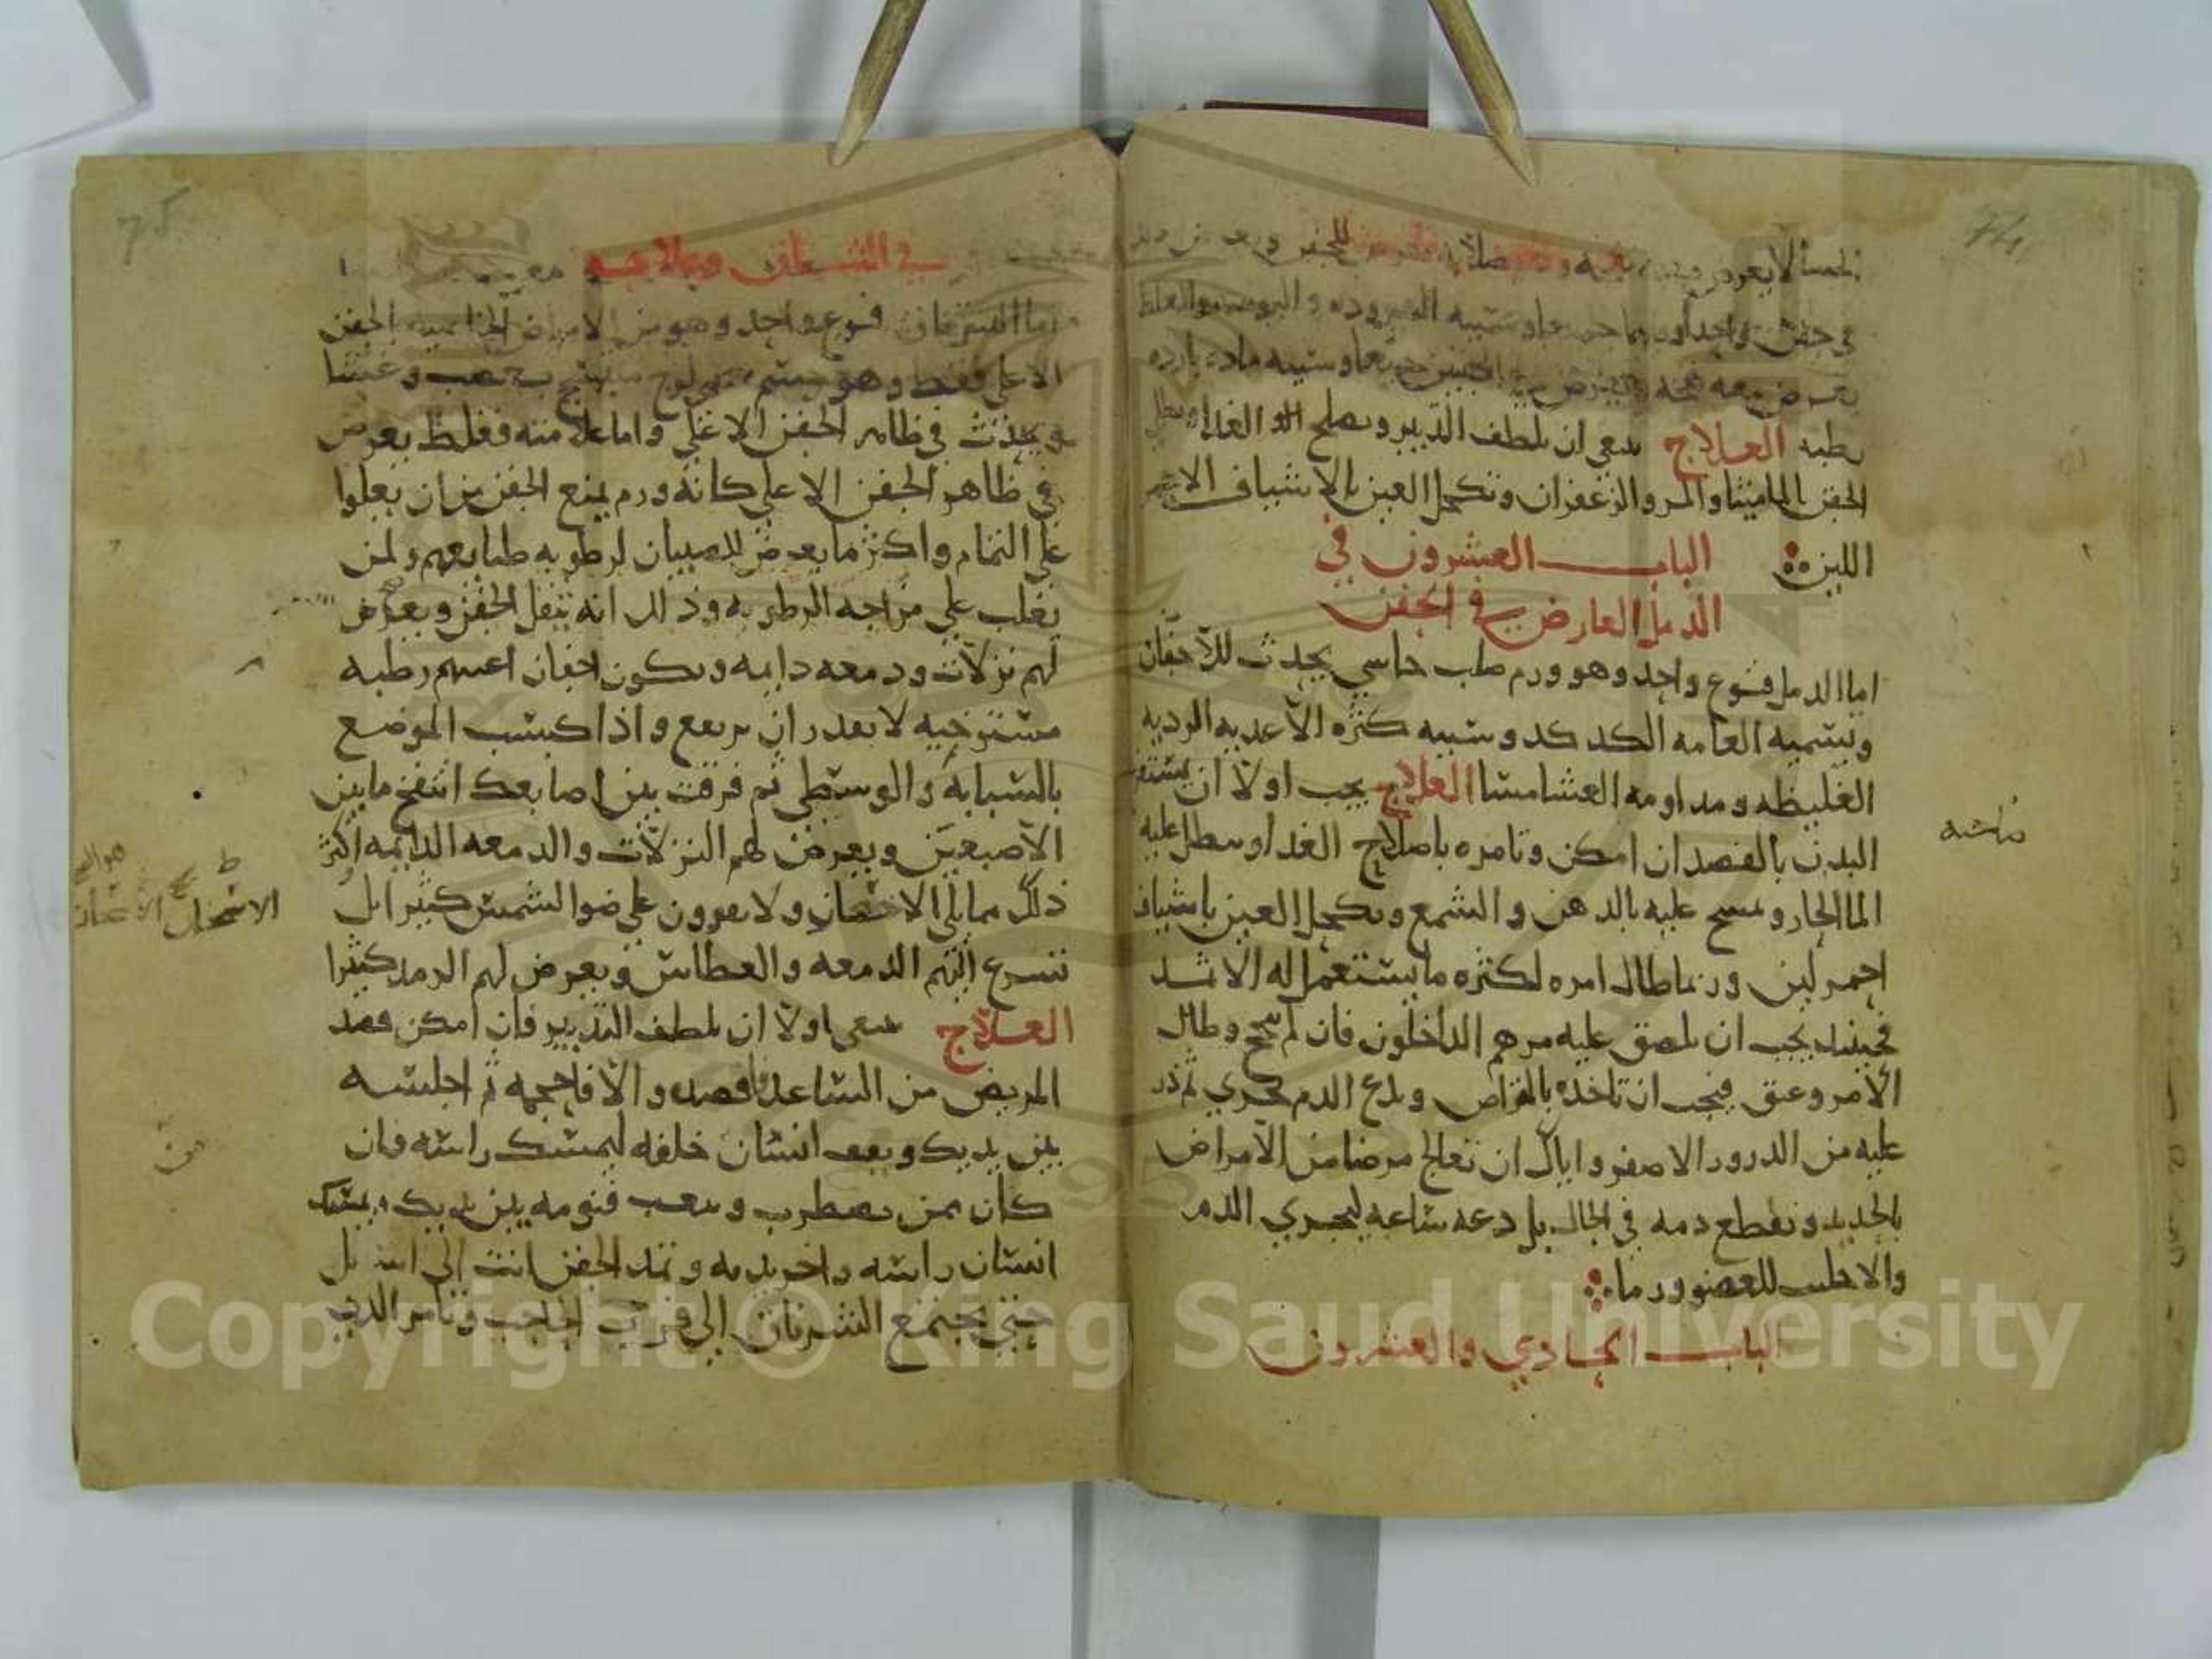 74
في جفن واحد او
يعرض معه
رطبه العلاج ينبغي ان يلطف التدبير ويصلح الغذا ويطلى
الجفن بالماميثا والمر والزعفران وتكحل العين بالاشياف الاحمر
اللين
الباب العشرون في
الدمل العارض في الجفن
اما الدمل فنوع واحد وهو ورم صلب جاسي يحدث للاجفان
وتسميه العامه الكدكد وسببه كثره الاغديه الرديه
الغليظه ومداومه العشا مسا العلاج يجب اولا ان
البدن بالفصد ان امكن وتامره باصلاح الغدا وبطل عليه
الما الحار وتمسح عليه بالدهن والشمع وتكحل العين باشياف
احمر لين وربما طال امره لكثره ما يستعمل له الاشد
فحينيد يجب ان يلصق عليه مرهم الداخلون فان لم ينجح وطال
الامر وعتق فيجب ان تاخده بالمقراص وتدع الدم يجري ثم ذر
عليه من الدرور الاصفر واياك ان تعالج مرضا من الامراض
بالحديد وتقطع دمه في الحال بل دعه ساعه ليجري الدم
والا جلب للعضو ورما
الباب الحادي والعشرون
75
في الشرناق وعلاجه
اما الشرناق فنوع واحد وهو من الامراض الخاصيه بالجفن
الاعلى فقط وهو جسم شحمي لزج منتسج بعصب وغشا
ويحدث في ظاهر الجفن الاعلى واما علامته فغلظ يعرض
في ظاهر الجفن الاعلى كانه ورم يمنع الجفن من ان يعلوا
على التمام واكثر ما يعرض للصبيان لرطوبه طبايعهم ولمن
يغلب على مزاجه الرطوبه وذلك انه يثقل الجفن ويعرض
لهم نزلات ودمعه دايمه وتكون اجفان اعينهم رطبه
مسترخيه لا يقدر ان يرتفع واذا كبست الموضع
بالسبابه والوسطى ثم فرقت بين اصابعك انتفخ ما بين
الاصبعين ويعرض لهم النزلات والدمعه الدايمه اكثر
ذلك مما يلي الاجفان ولا يقوون على ضو الشمس كثيرا بل
تسرع اليهم الدمعه والعطاس ويعرض لهم الرمد كثيرا
العلاج ينبغي اولا ان يلطف التدبير فان امكن فصد
المريض من الساعد فافصده والا فاحجمه ثم اجلسه
بين يديك ويقف انسان خلفه ليمسك راسه فان
كان ممن يضطرب ويتعب فنومه بين يديك ويمسك
انسان راسه واخر يديه وتمد الجفن انت الى اسفل
حتى يجتمع الشرناق الى قرب الحاجب وتامر الذي
من
Copyright © King Saud University